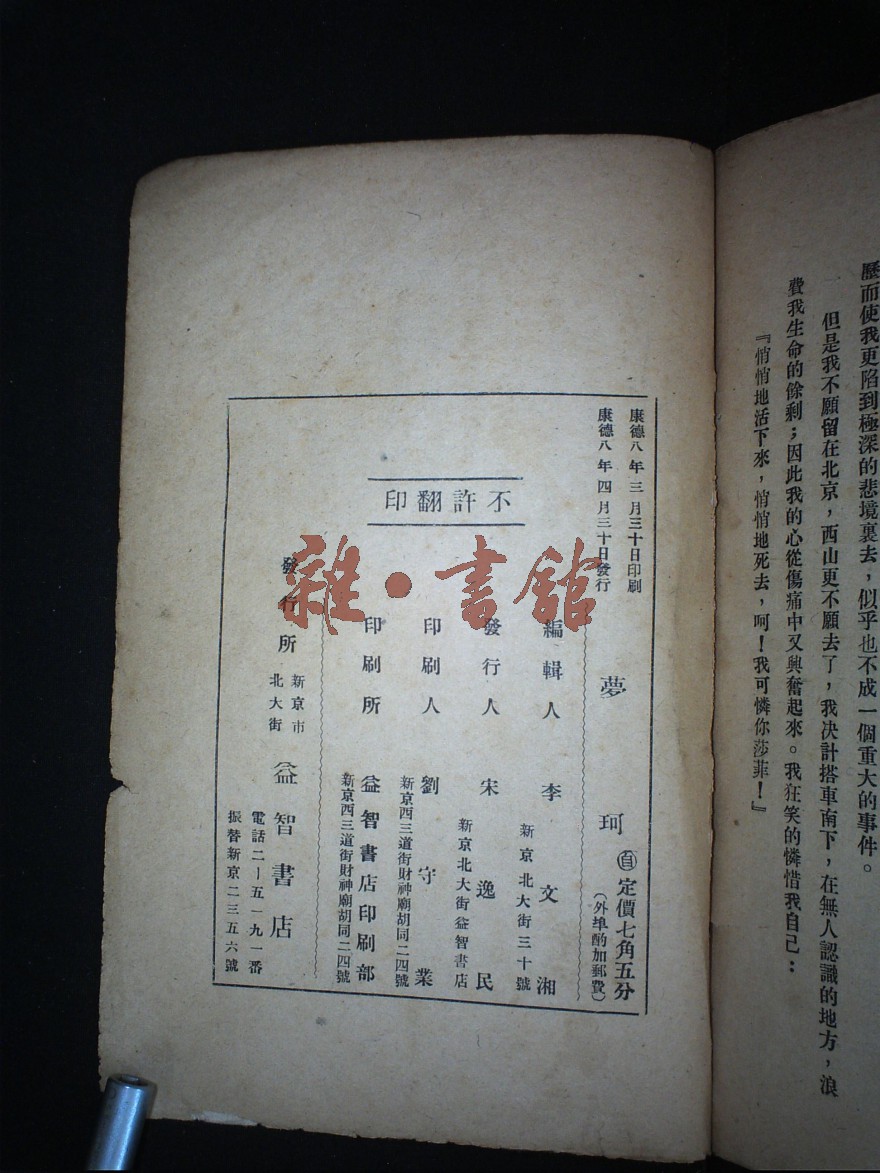 歷而使我更陷到極深的悲境裏去，似乎也不成一個重大的事件。
但是我不願留在北京，西山更不願去了，我決計搭車南下，在無人認識的地方，浪
費我生命的餘剩；因此我的心從傷痛中又興奮起來。我狂笑的憐惜我自己：
『悄悄地活下來，悄悄地死去，呵！我可憐你莎菲！』
康德八年三月三十日印刷
康德八年四月三十日發行
夢珂
㊀定價七角五分
（外埠酌加郵費）
不許翻印
編輯人 李文湘
新京北大街三十號
發行人 宋逸民
新京北大街益智書店
印刷人 劉守業
新京西三道街財神廟胡同二四號
印刷所 益智書店印刷部
新京西三道街財神廟胡同二四號
發行所 新京市
北大街 益智書店
電話二—五一九一番
振替新京二三五六號
雜·書館